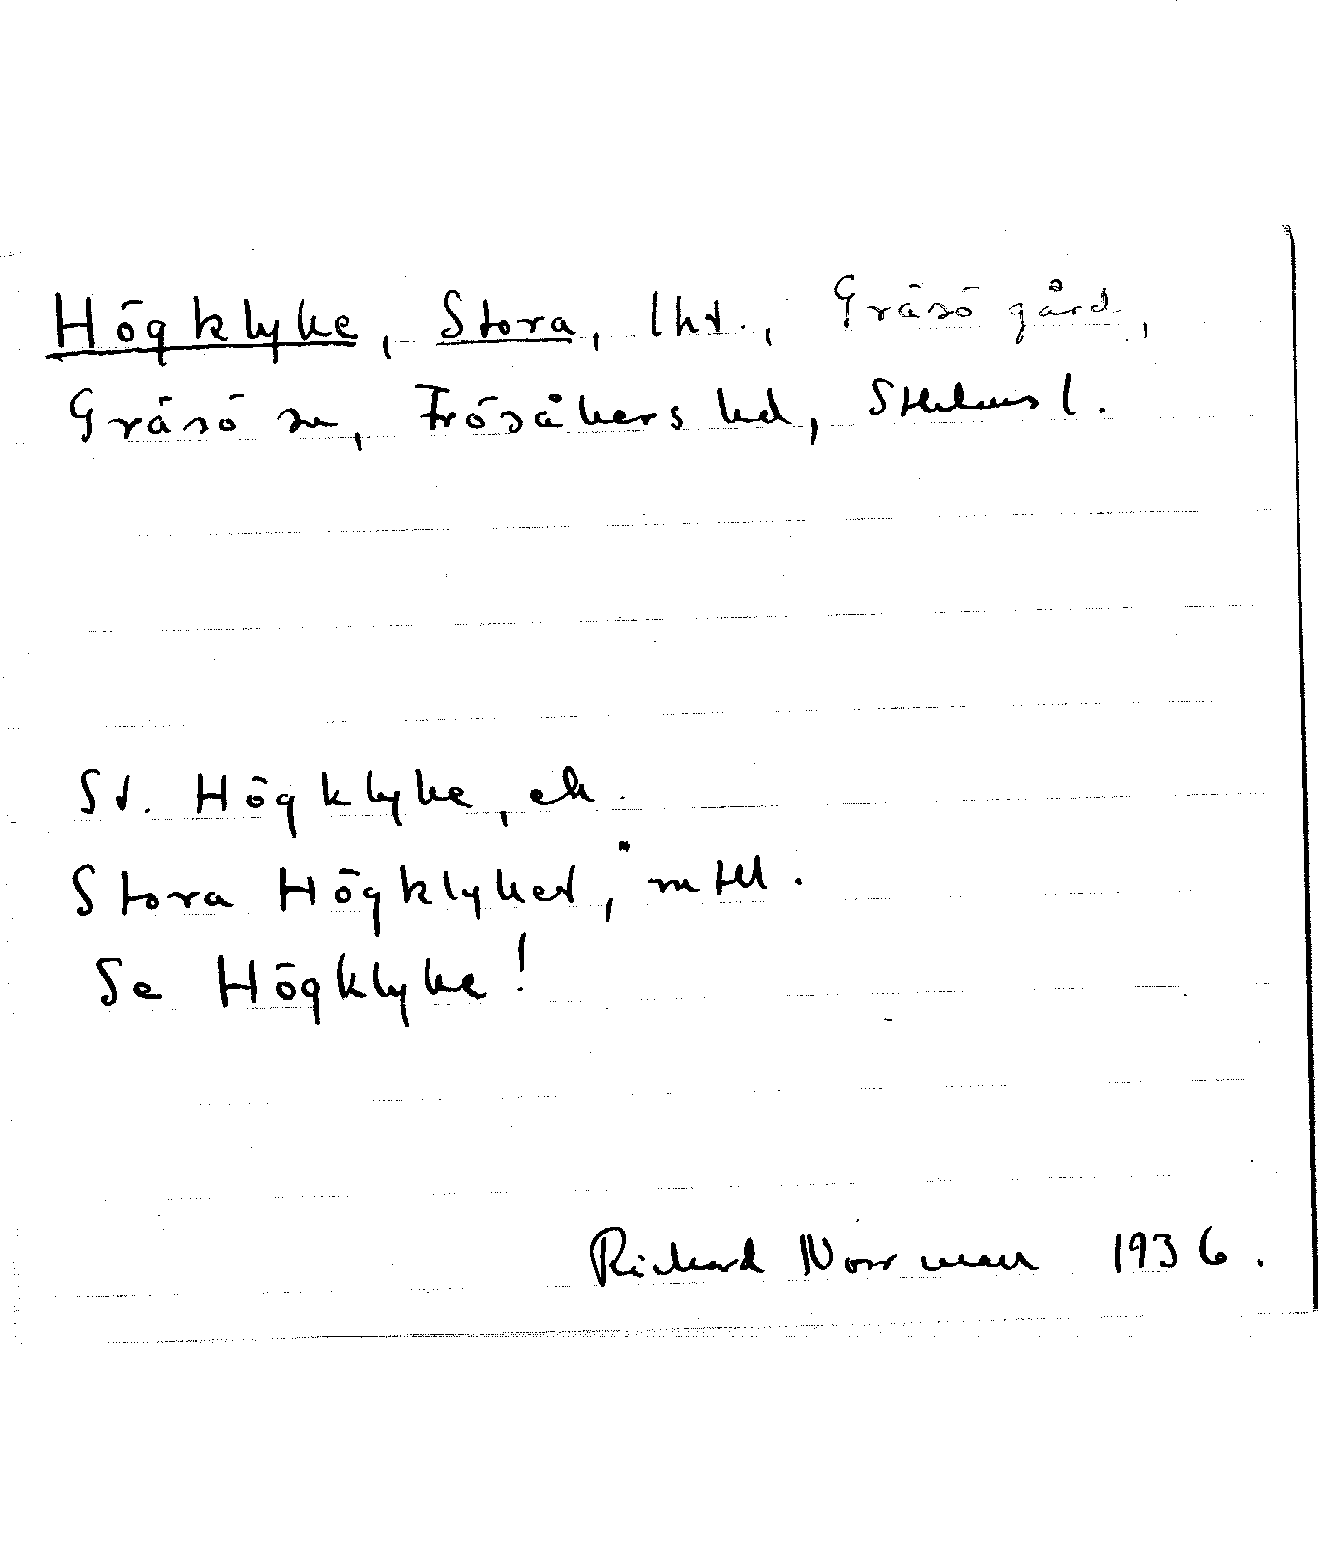 Högklyke, Stora, lht., Gräsö gård,
Gräsö sn, Frösåkers hd, Sthlms l.
St. Högklyke, ek.
Stora Högklyket, " mtbl.
Se Högklyke!
Richard Norrman 1936.